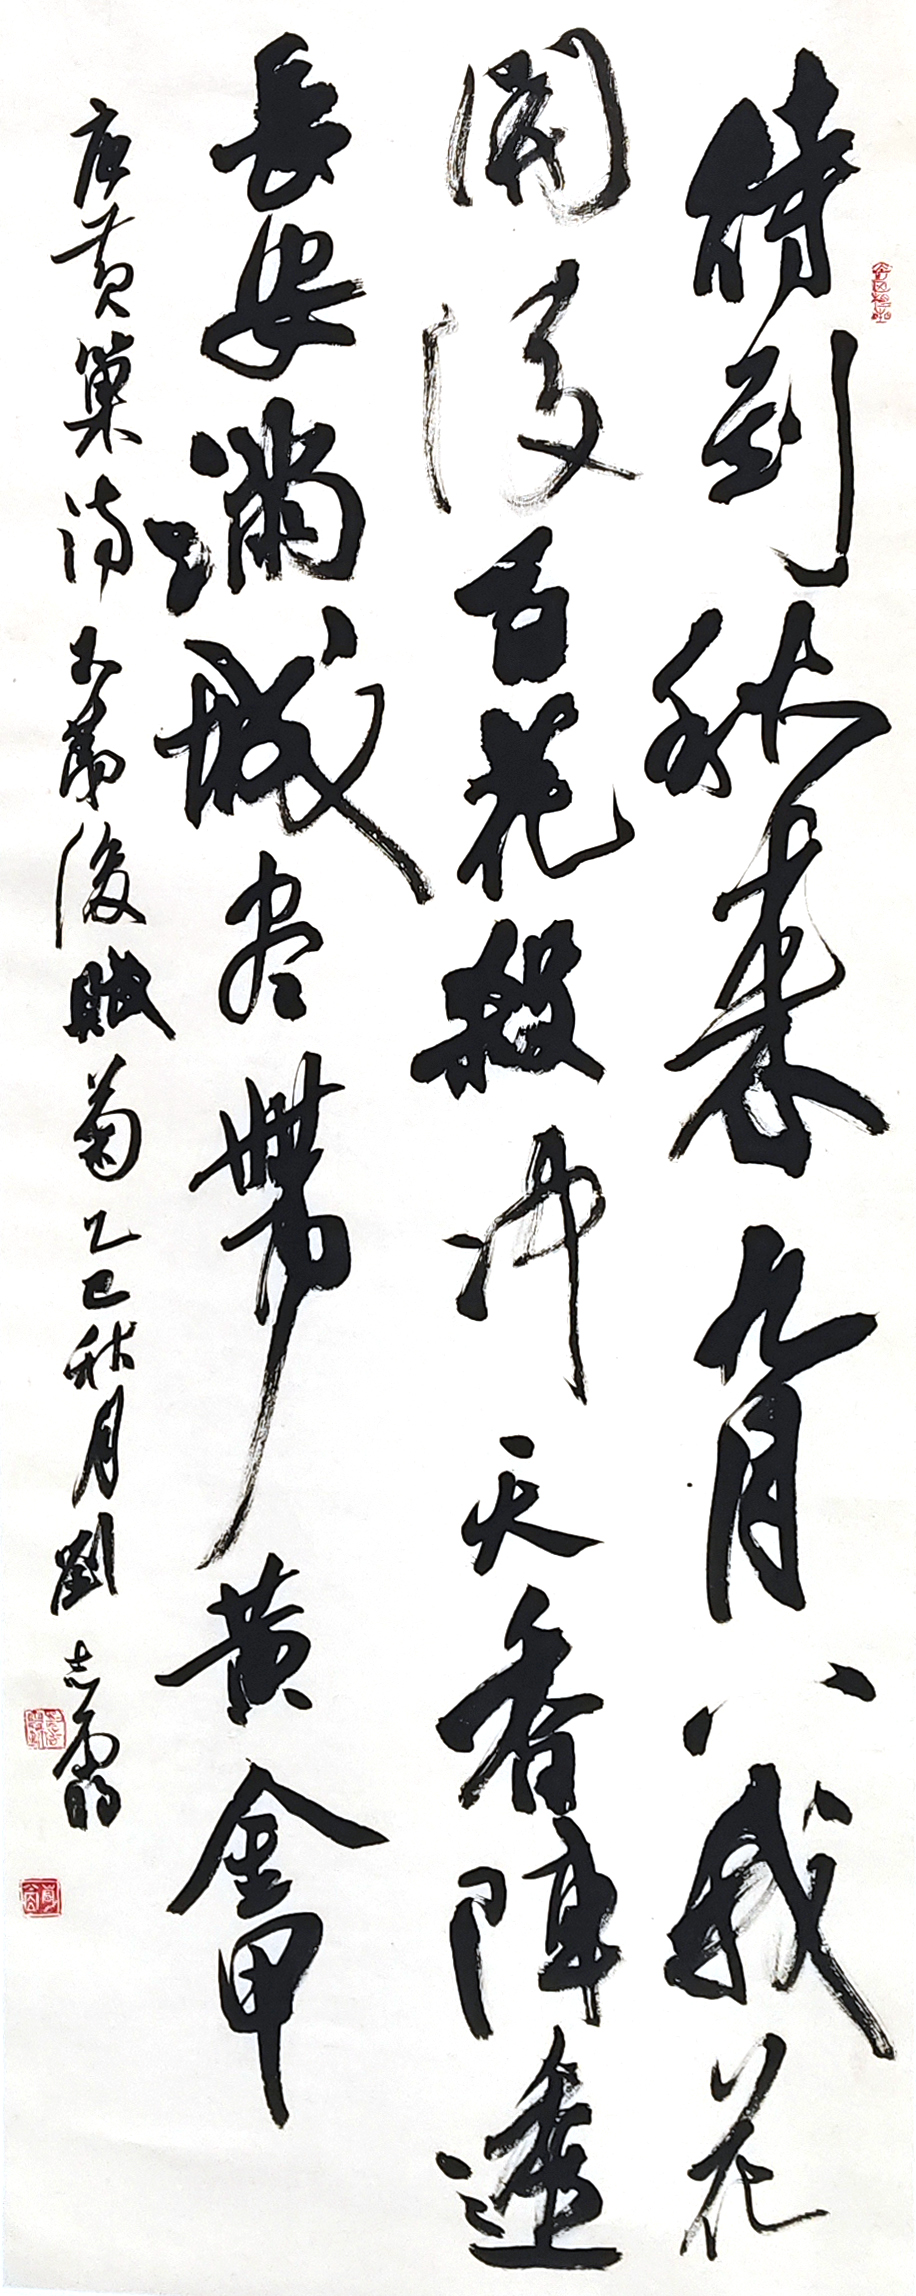 待到秋来九月八我花
開後百花殺冲天香陣透
長安満城尽帶黄金甲
唐黄巢诗不第後賦菊乙巳秋月劉志